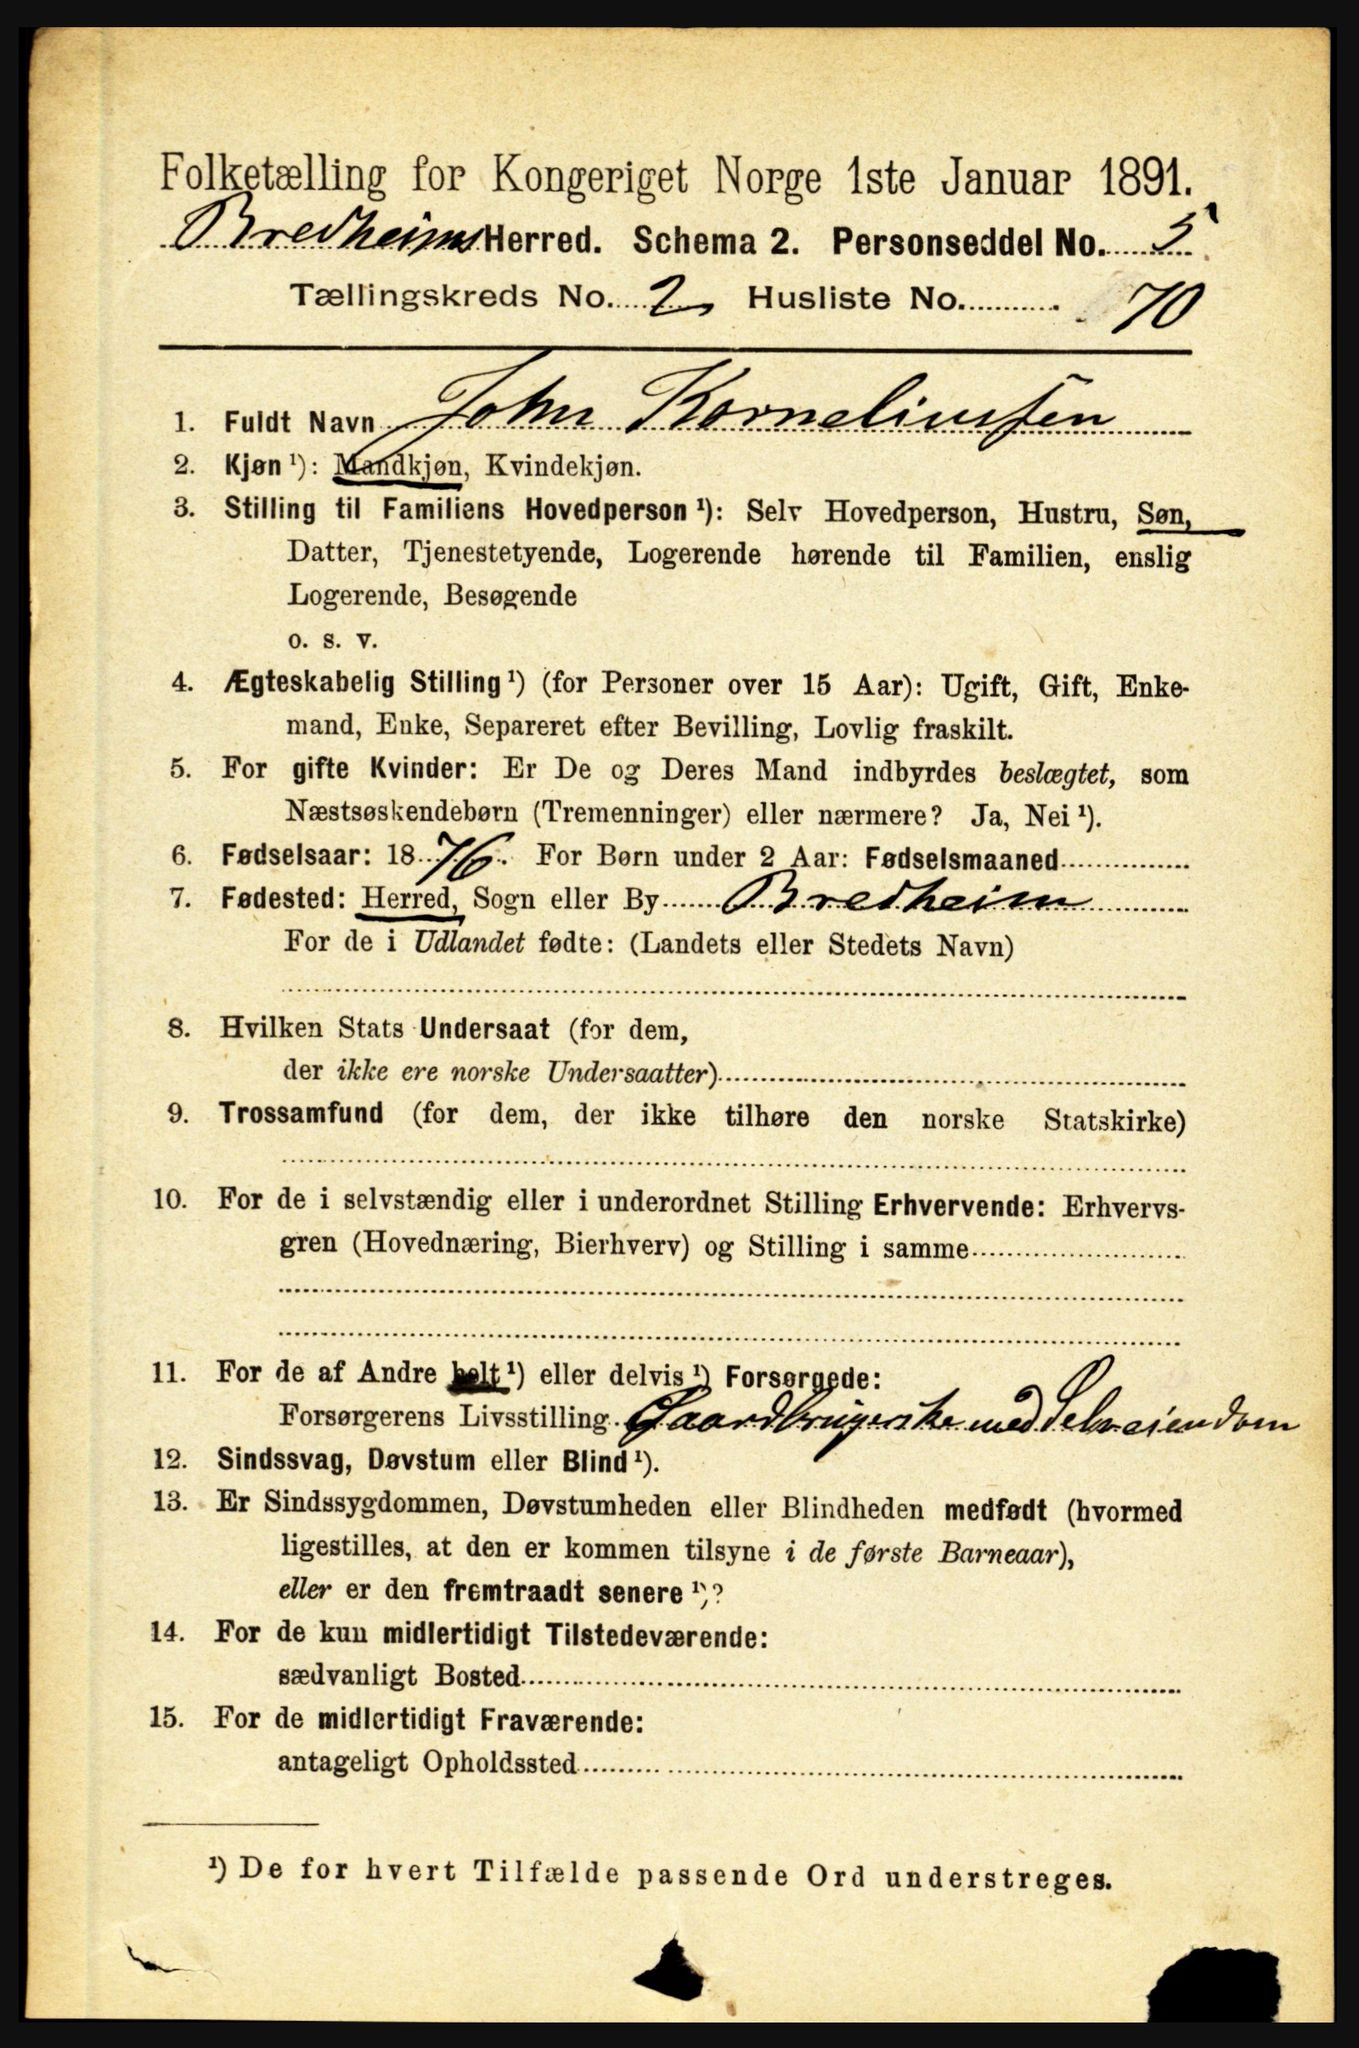 Folketælling for Kongeriget Norge 1ste Januar 1891.
Bredheims Herred. Schema 2. Personseddel No. 5
Tællingskreds No. 2 Husliste No. 70
1. Fuldt Navn John Korneliussen
2. Kjøn ¹): Mandkjøn, Kvindekjøn.
3. Stilling til Familiens Hovedperson ¹): Selv Hovedperson, Hustru, Søn,
Datter, Tjenestetyende, Logerende hørende til Familien, enslig
Logerende, Besøgende
o. s. v.
4. Ægteskabelig Stilling ¹) (for Personer over 15 Aar): Ugift, Gift, Enke-
mand, Enke, Separeret efter Bevilling, Lovlig fraskilt.
5. For gifte Kvinder: Er De og Deres Mand indbyrdes beslægtet, som
Næstsøskendebørn (Tremenninger) eller nærmere? Ja, Nei ¹).
6. Fødselsaar: 1876. For Børn under 2 Aar: Fødselsmaaned
7. Fødested: Herred, Sogn eller By Bredheim
For de i Udlandet fødte: (Landets eller Stedets Navn)
8. Hvilken Stats Undersaat (for dem,
der ikke ere norske Undersaatter)
9. Trossamfund (for dem, der ikke tilhøre den norske Statskirke)
10. For de i selvstændig eller i underordnet Stilling Erhvervende: Erhvervs-
gren (Hovednæring, Bierhverv) og Stilling i samme
11. For de af Andre helt ¹) eller delvis ¹) Forsørgede:
Forsørgerens Livsstilling Gaardbrugerske med Selveiendom
12. Sindssvag, Døvstum eller Blind ¹).
13. Er Sindssygdommen, Døvstumheden eller Blindheden medfødt (hvormed
ligestilles, at den er kommen tilsyne i de første Barneaar),
eller er den fremtraadt senere ¹)?
14. For de kun midlertidigt Tilstedeværende:
sædvanligt Bosted
15. For de midlertidigt Fraværende:
antageligt Opholdssted
¹) De for hvert Tilfælde passende Ord understreges.